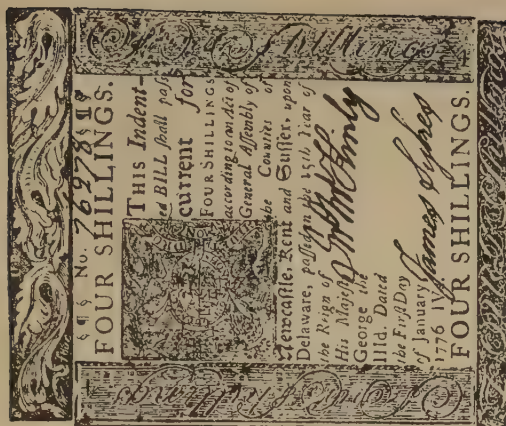 Four Shillings
§ ¶ § No. 76978 ¶ §
FOUR SHILLINGS.
THIS Indent-
ed BILL shall pass
current for
FOUR SHILLINGS
according to an Act of
General Assembly of
the Counties of
Newcastle, Kent and Sussex, upon
Delaware, passed in the 15th Year of
the Reign of
His Majesty
George the
IIId. Dated
the First Day
of January
1776
James Sykes
FOUR SHILLINGS.
Shillings